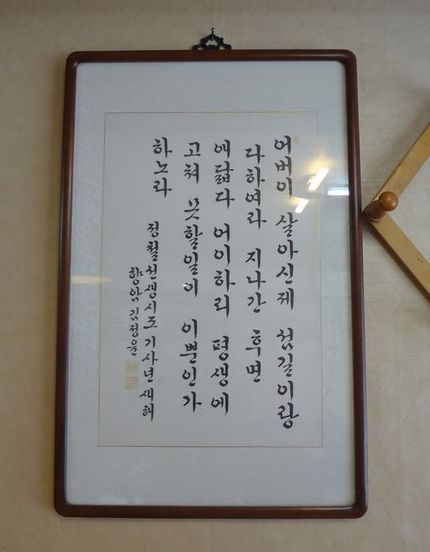 어버이 살아신제 섬길이랑
다하여라 지나간 후면
애닯다 어이하리 평생에
고쳐 못할일이 이뿐인가
하노라
정철선생시조 기사년새해
향암 김정운